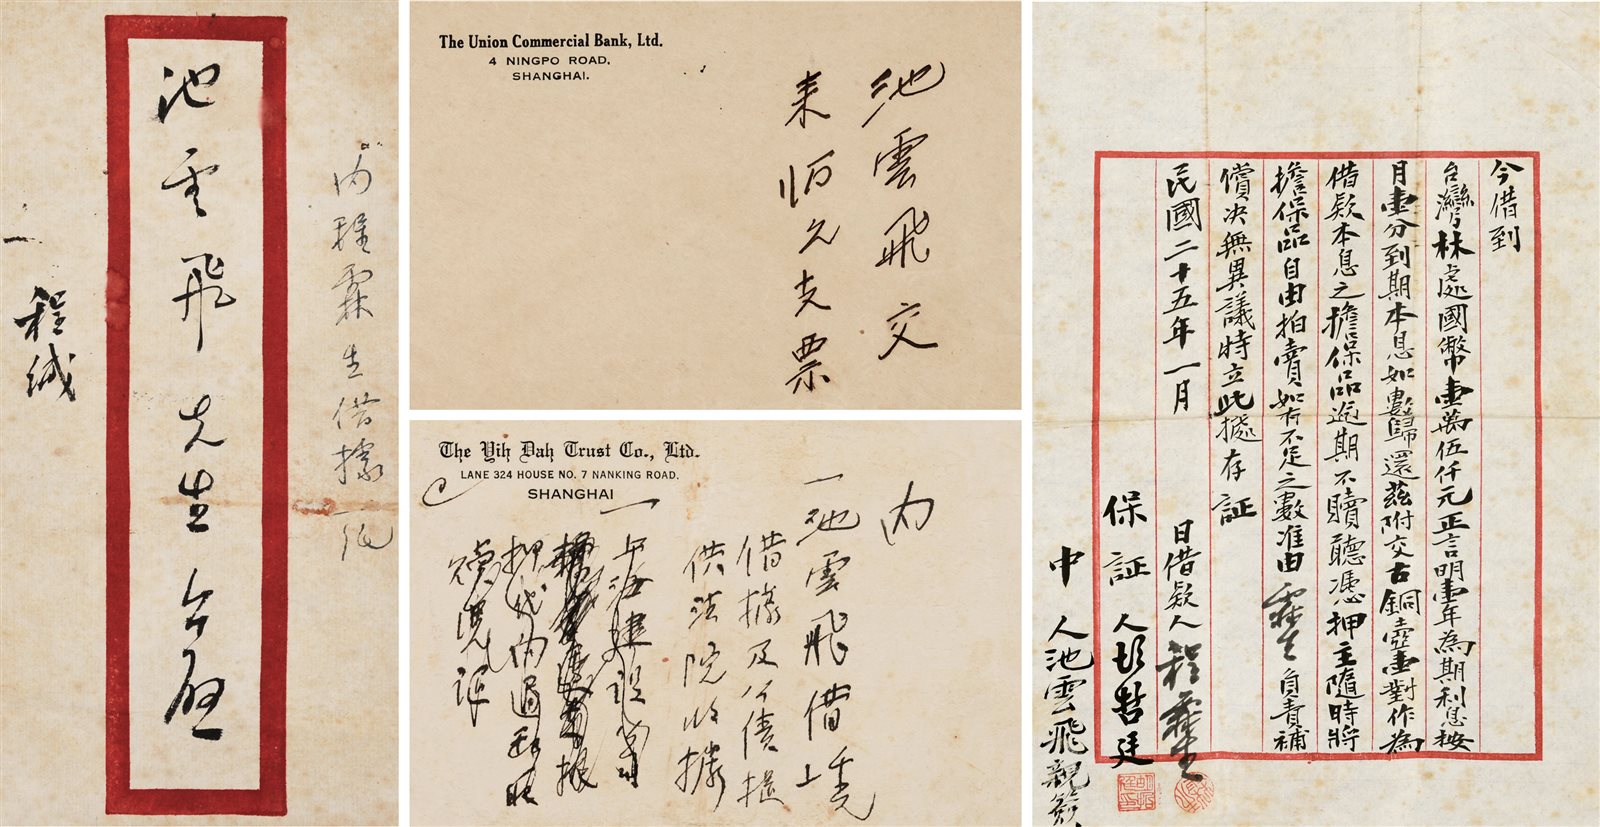 內程霖生借據一紙
池雲飛先生台啟
程緘
The Union Commercial Bank, Ltd.
4 NINGPO ROAD,
SHANGHAI.
池雲飛交
來怊久支票
The Yih Dah Trust Co., Ltd.
LANE 324 HOUSE NO. 7 NANKING ROAD.
SHANGHAI
內
一池雲飛借
借據及公債
供法院收據
一上海建設
今借到
台灣林處國幣壹萬伍仟元正言明壹年為期利息按
月壹分到期本息如數歸還茲附交古銅壺壹對作為
借款本息之擔保品逾期不贖聽憑押主隨時將
擔保品自由拍賣如有不足之數准由霖生負責補
償決無異議特立此據存証
民國二十五年一月 日借款人程霖生
保証人
中 人池雲飛親簽